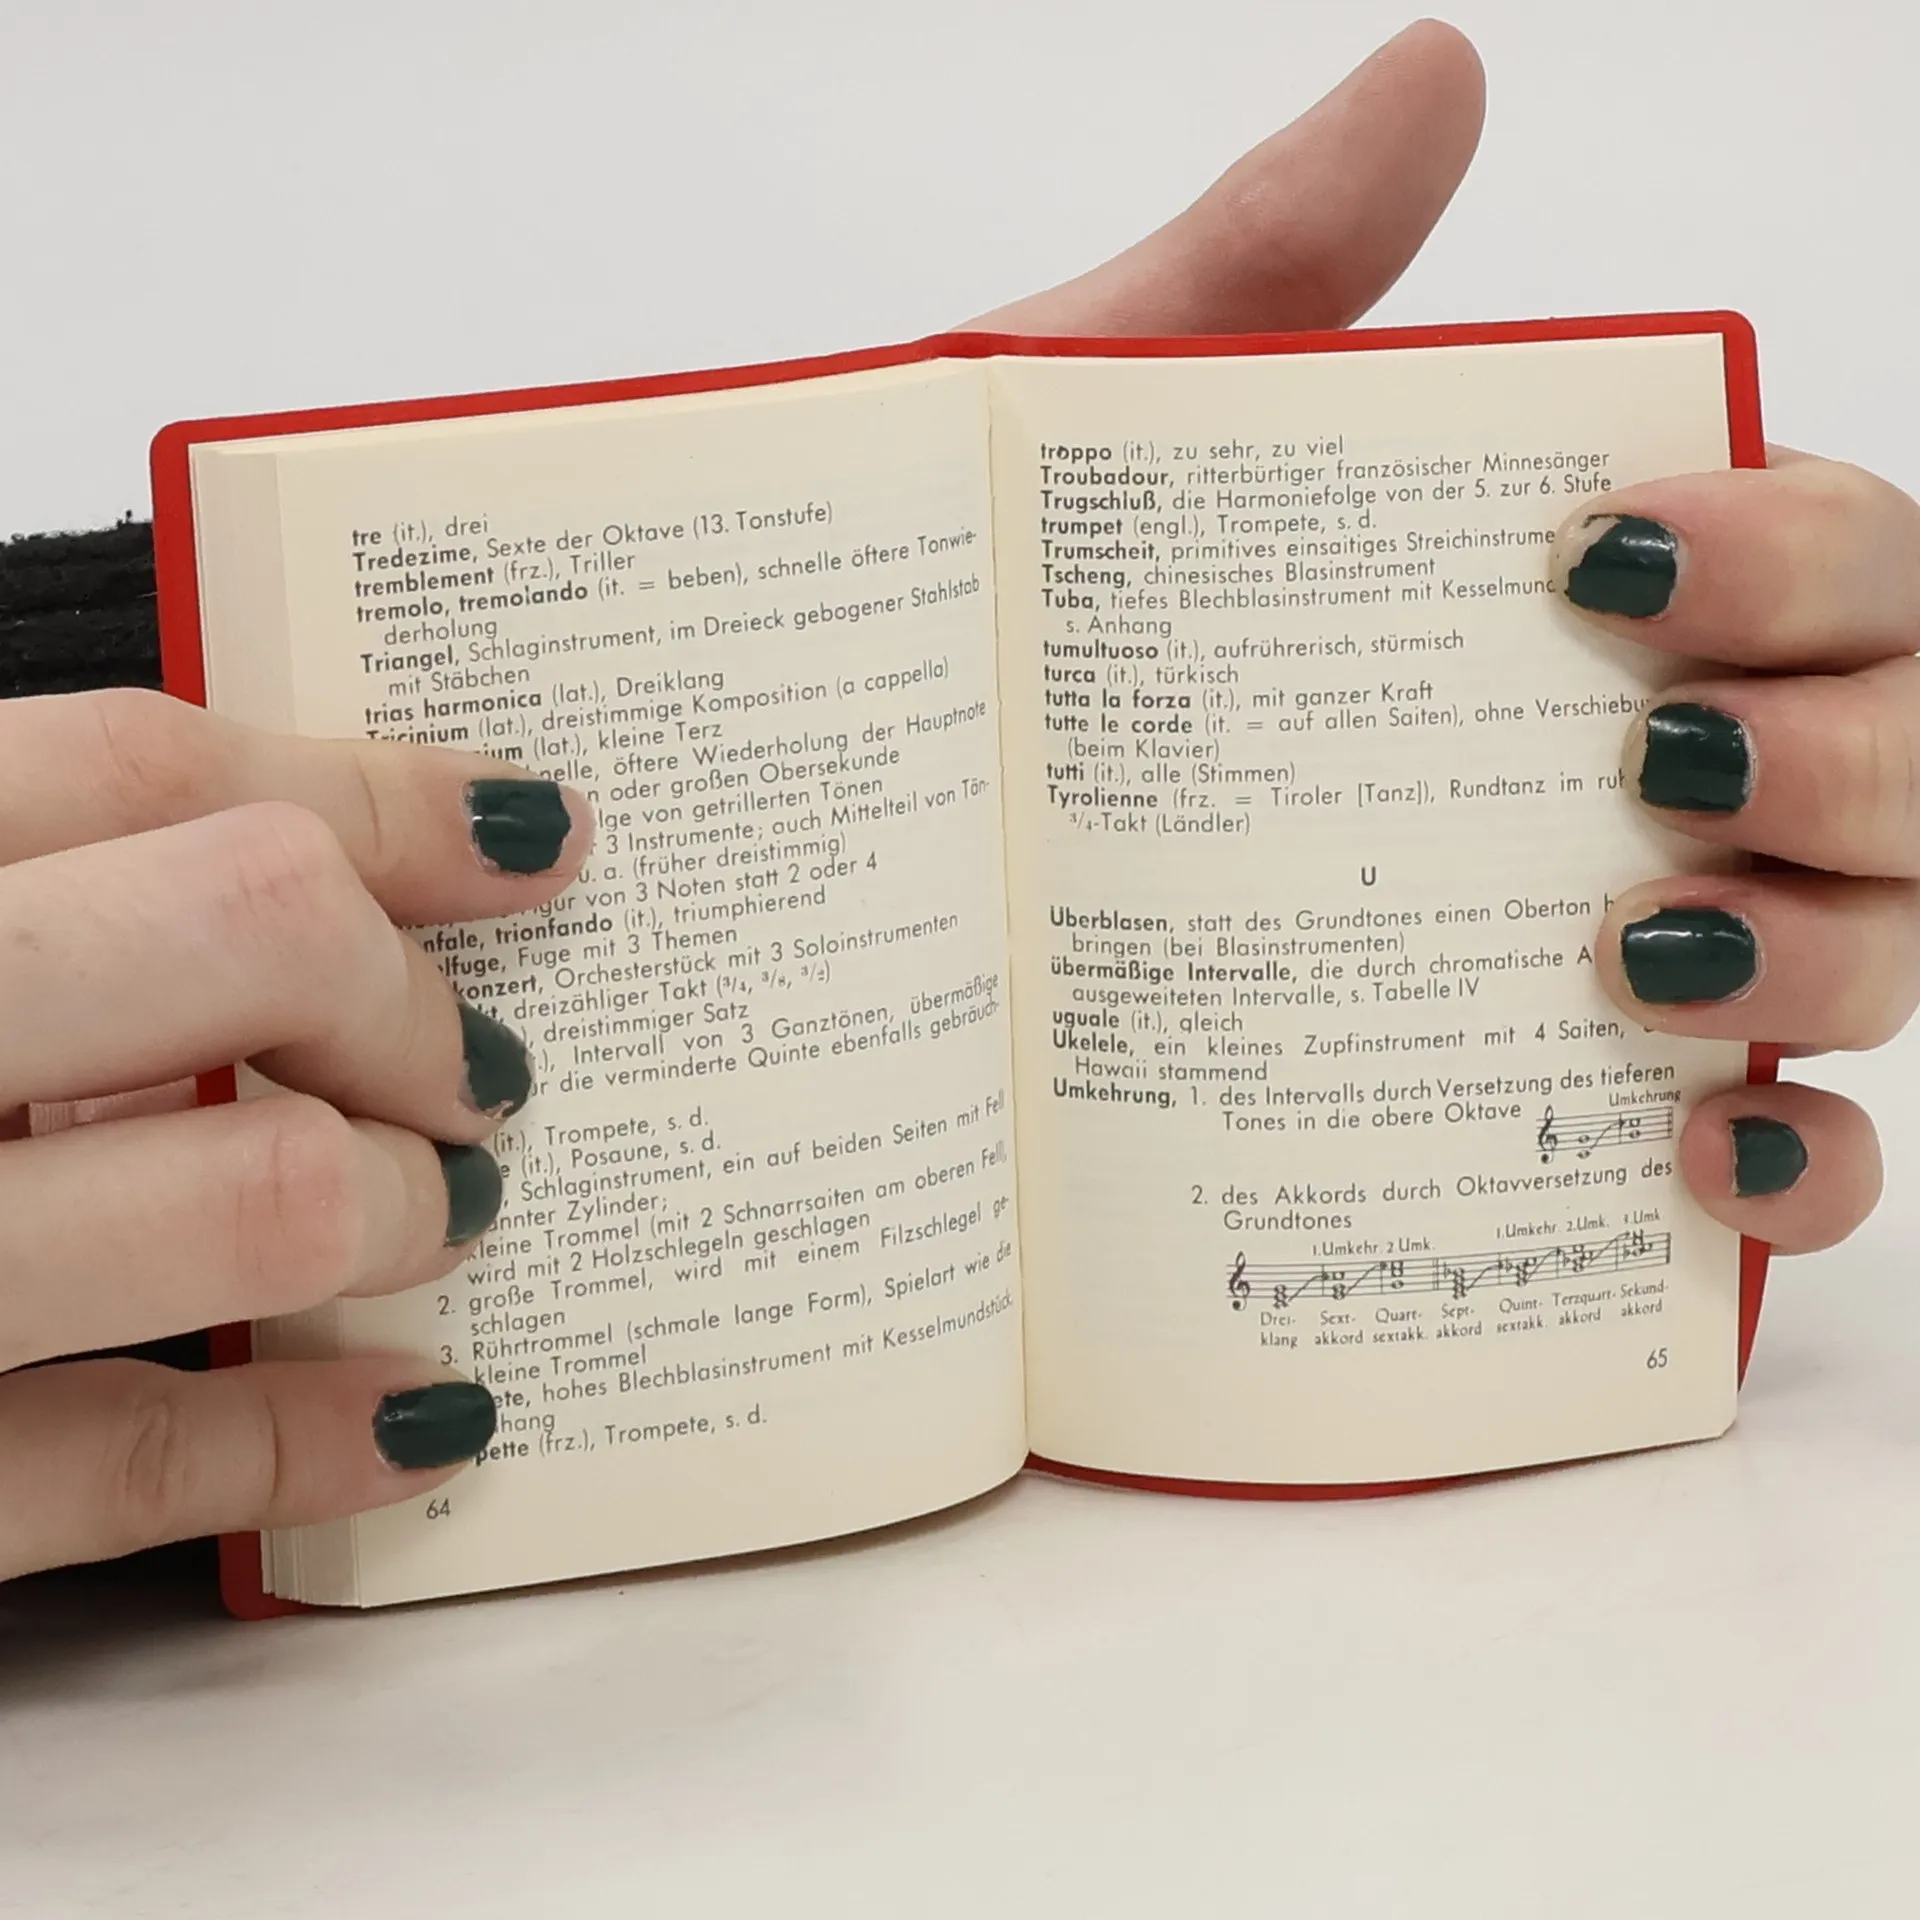 tre (it.), drei
Tredezime, Sexte der Oktave (13. Tonstufe)
tremblement (frz.), Triller
tremolo, tremolando (it. = beben), schnelle öftere Tonwie-
derholung
Triangel, Schlaginstrument, im Dreieck gebogener Stahlstab
mit Stäbchen
trias harmonica (lat.), Dreiklang
Tricinium (lat.), dreistimmige Komposition (a cappella)
(lat.), kleine Terz
öftere Wiederholung der Hauptnote
oder großen Obersekunde
von getrillerten Tönen
3 Instrumente; auch Mittelteil von Tän-
u. a. (früher dreistimmig)
von 3 Noten statt 2 oder 4
trionfando (it.), triumphierend
Fuge mit 3 Themen
Orchesterstück mit 3 Soloinstrumenten
dreizähliger Takt (3/4, 3/8, 3/2)
dreistimmiger Satz
Intervall von 3 Ganztönen, übermäßige
die verminderte Quinte ebenfalls gebräuch-
(it.), Trompete, s. d.
(it.), Posaune, s. d.
Schlaginstrument, ein auf beiden Seiten mit Fell
Zylinder;
kleine Trommel (mit 2 Schnarrsaiten am oberen Fell,
wird mit 2 Holzschlegeln geschlagen
2. große Trommel, wird mit einem Filzschlegel ge-
schlagen
3. Rührtrommel (schmale lange Form), Spielart wie die
kleine Trommel
hohes Blechblasinstrument mit Kesselmundstück,
(frz.), Trompete, s. d.
64
troppo (it.), zu sehr, zu viel
Troubadour, ritterbürtiger französischer Minnesänger
Trugschluß, die Harmoniefolge von der 5. zur 6. Stufe
trumpet (engl.), Trompete, s. d.
Trumscheit, primitives einsaitiges Streichinstrume
Tscheng, chinesisches Blasinstrument
Tuba, tiefes Blechblasinstrument mit Kesselmund
s. Anhang
tumultuoso (it.), aufrührerisch, stürmisch
turca (it.), türkisch
tutta la forza (it.), mit ganzer Kraft
tutte le corde (it. = auf allen Saiten), ohne Verschiebu
(beim Klavier)
tutti (it.), alle (Stimmen)
Tyrolienne (frz. = Tiroler [Tanz]), Rundtanz im
3/4-Takt (Ländler)
U
Überblasen, statt des Grundtones einen Oberton
bringen (bei Blasinstrumenten)
übermäßige Intervalle, die durch chromatische
ausgeweiteten Intervalle, s. Tabelle IV
uguale (it.), gleich
Ukelele, ein kleines Zupfinstrument mit 4 Saiten,
Hawaii stammend
Umkehrung, 1. des Intervalls durch Versetzung des tieferen
Tones in die obere Oktave
Umkehrung
2. des Akkords durch Oktavversetzung des
Grundtones
1.Umkehr. 2.Umk. 1.Umkehr. 2.Umk. 3.Umk
Drei- Sext- Quart- Sept- Quint- Terzquart- Sekund-
klang akkord sextakk. akkord sextakk. akkord akkord
65